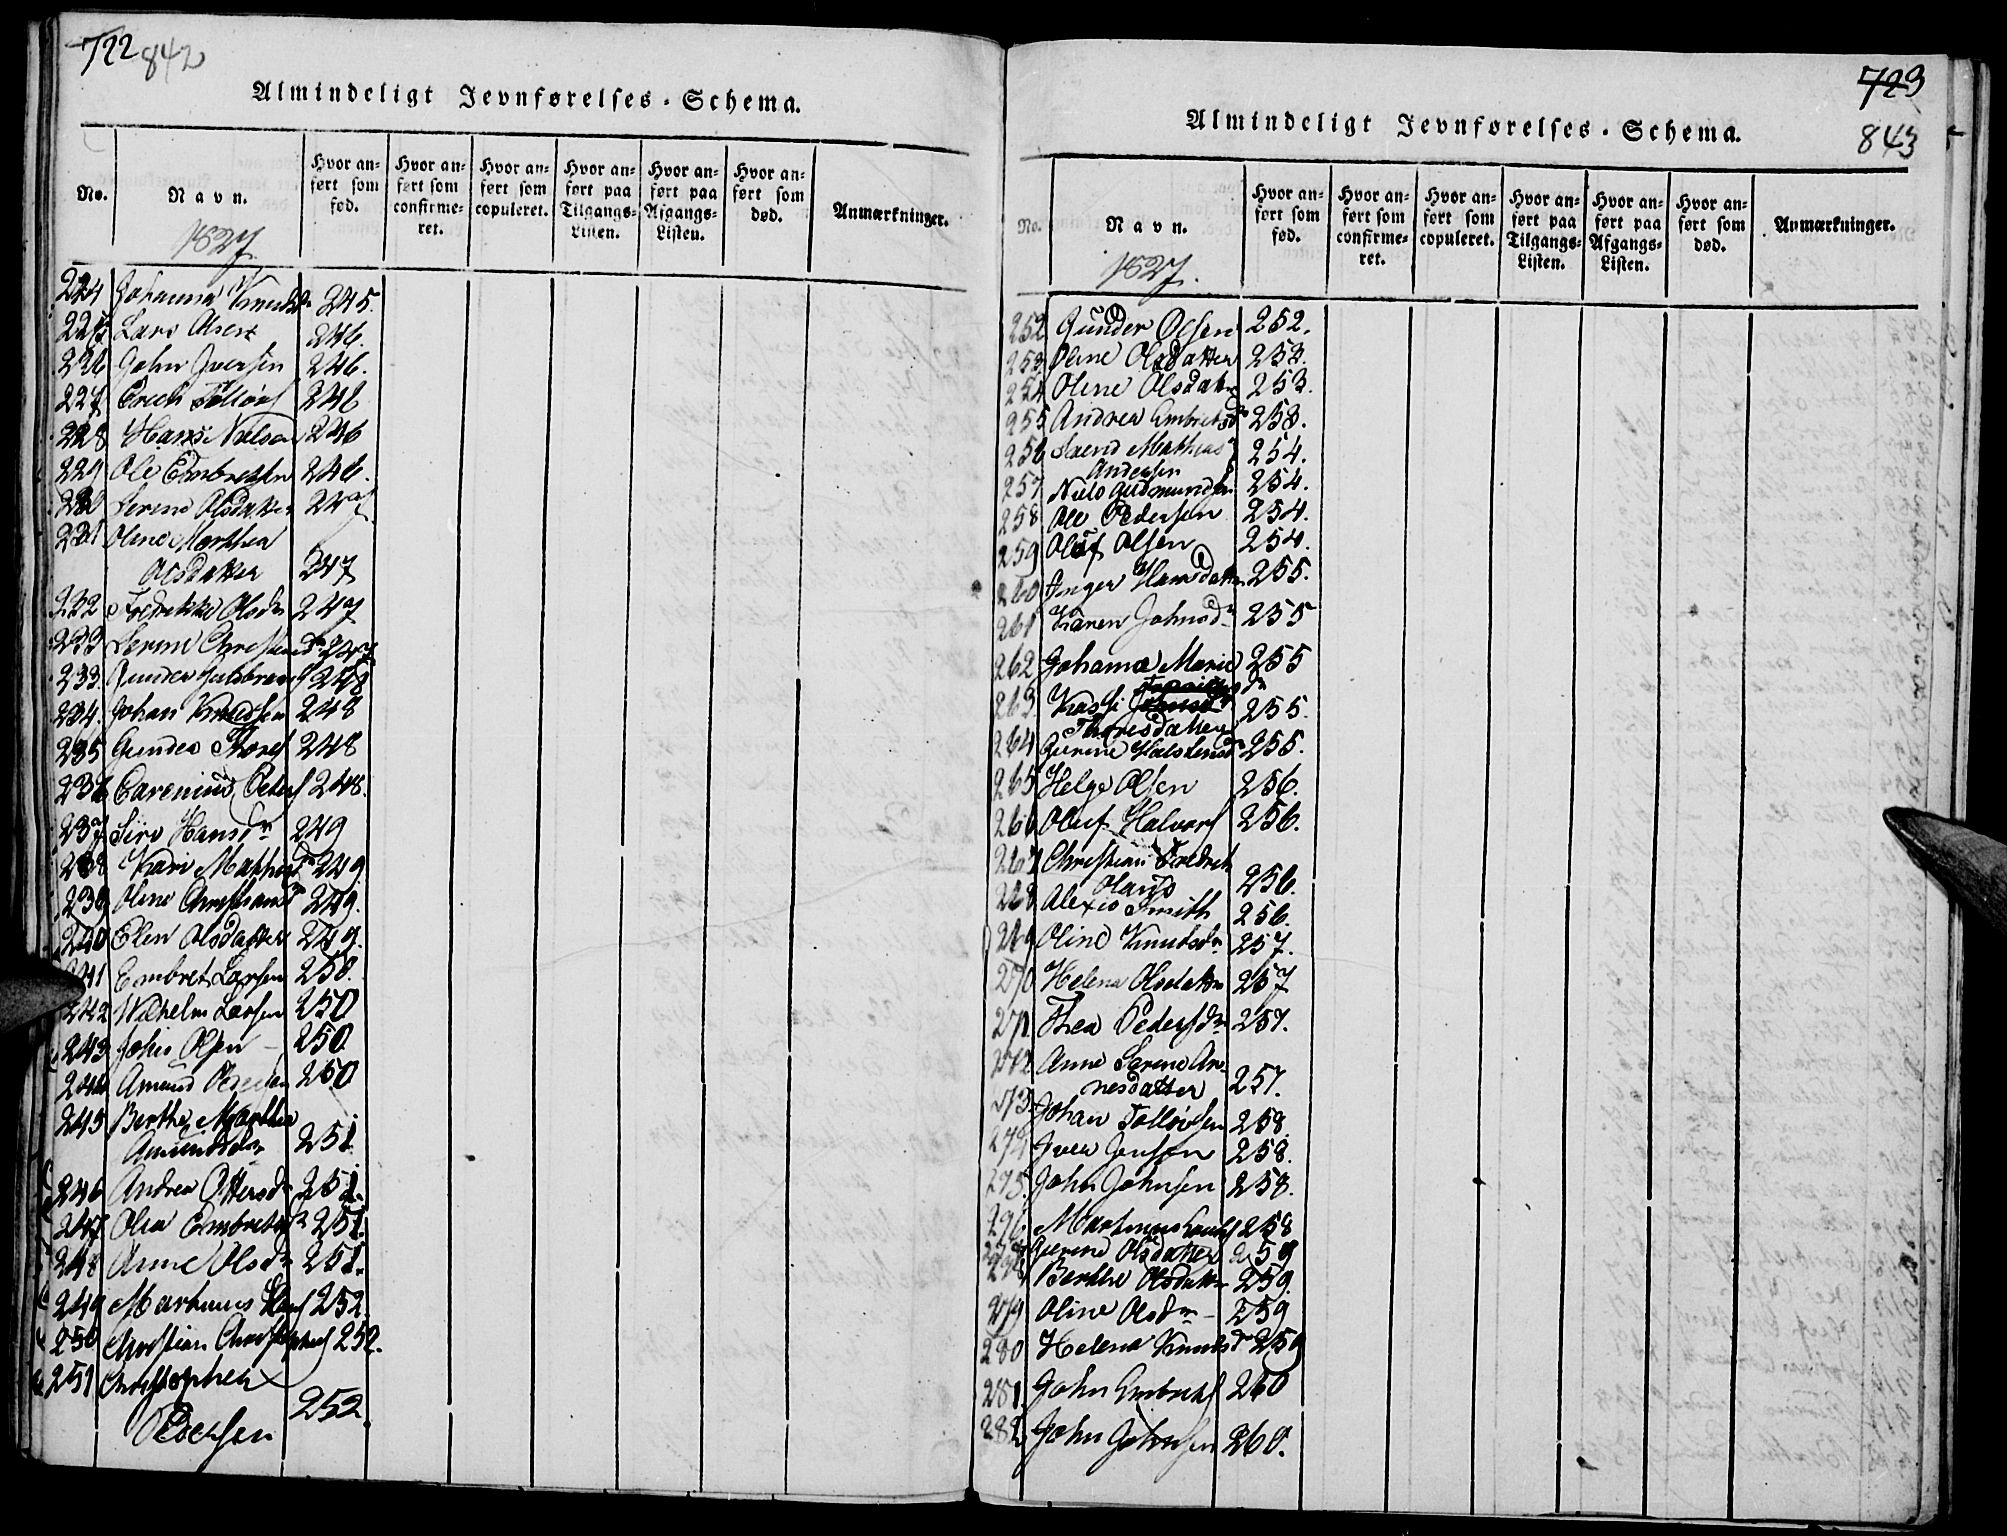 722 842
Almindeligt Jevnførelses-Schema.
No. Navn. Hvor anført som fød. Hvor anført som confirmeret. Hvor anført som copuleret. Hvor anført paa Tilgangs-Listen. Hvor anført paa Afgangs-Listen. Hvor anført som død. Anmærkninger.
1827.
224 Johanna Knudsdr 245.
225 Lars Olsen 246.
226 John Iversen 246.
227 Erich Tolløvs 246
228 Hans Nielsen 246
229 Ole Embretsen 246.
230 Serene Olsdatter 247
231 Oline Marthea
Olsdatter 247
232 Fredrikke Olsdr 247
233 Serine Christiansdr 247
233. Gunder Guldbrans 248
234. Johan Knudsen 248
235 Gunder Thores 248
236 Carenius Peders 248.
237 Siri Hansdr 249
238 Kari Mathiasdr 249
239 Oline Christiansdr 249.
240 Elen Olsdatter 249.
241 Embret Larsen 250.
242 Wilhelm Larsen 250
243 Johis Olsen 250.
244 Amund Pedersen 250
245 Berthe Marthea
Amundsdr 251
246 Andrea Ottersdr 251.
247 Olea Embretsdr 251.
248 Anne Olsdr 251.
249 Marthinus Hans 252.
250 Christian Christophers 252.
251 Christopher
Pedersen 252.
723
843
Almindeligt Jevnførelses-Schema.
No. Navn. Hvor anført som fød. Hvor anført som confirmeret. Hvor anført som copuleret. Hvor anført paa Tilgangs-Listen. Hvor anført paa Afgangs-Listen. Hvor anført som død. Anmærkninger.
1827.
252 Gunder Olsen 252.
253 Oline Olsdatter 253.
254 Oline Olsdatter 253.
255 Andrea Embretsdr 253.
256 Svend Mathias
Andersen 254.
257 Niels Gudmundsen 254.
258 Ole Pedersen 254.
259 Oluf Olsen 254.
260 Inger Hansdatter 255.
261 Karen Johnsdr 255
262 Johanna Marie 255
263 Kasti
Thoresdatter 255.
264 Gurine Halstensdr 255.
265 Helge Olsen 256.
266 Oluf Halvors 256.
267 Christian Fredrik
Olaus 256.
268 Alexis Smith 256.
269 Oline Knudsdr 257.
270 Helena Olsdatter 257
271 Thea Pedersdr 257.
272 Anne Serene Ar-
nesdatter 257.
273 Johan Tolløvsen 258.
274 Iver Jensen 258.
275. John Johnsen 258.
276. Marthinus 258
277 Gurine Olsdatter 259
278 Berthe Olsdatter 259.
279 Oline Olsdr 259
280 Helena Knudsdr 259
281 John Embrets 260
282 John Johnsen 260.